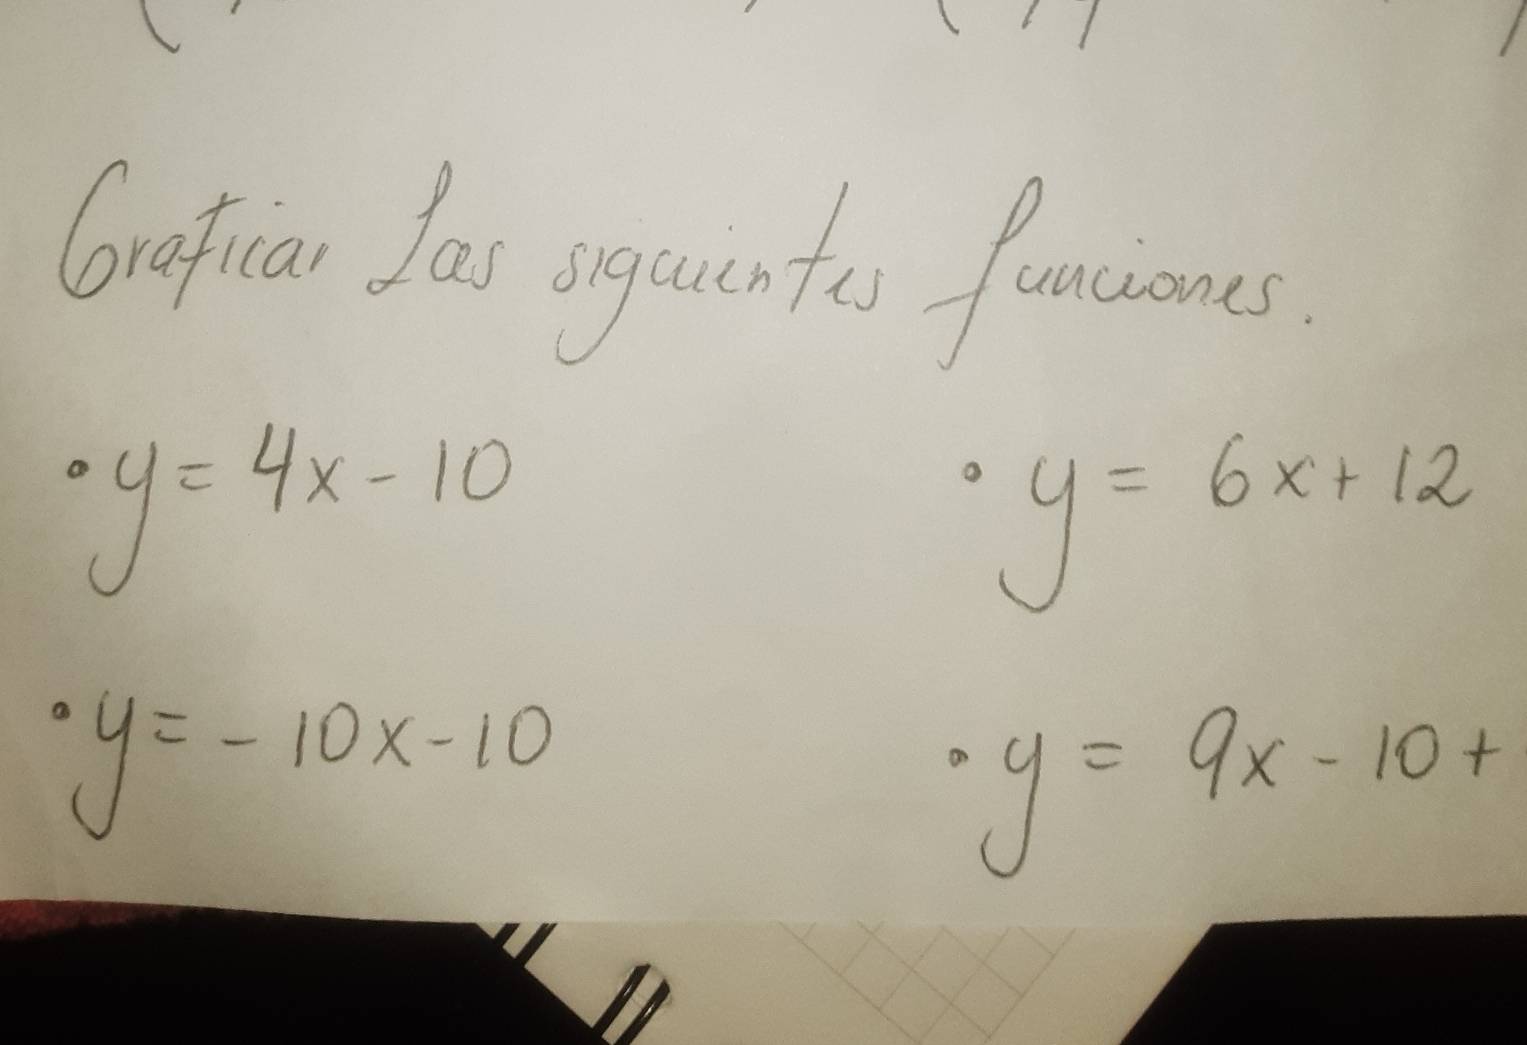 Graficar Las siguientes funciones.
• y = 4x - 10 • y = 6x + 12
• y = - 10x - 10 • y = 9x - 10 +